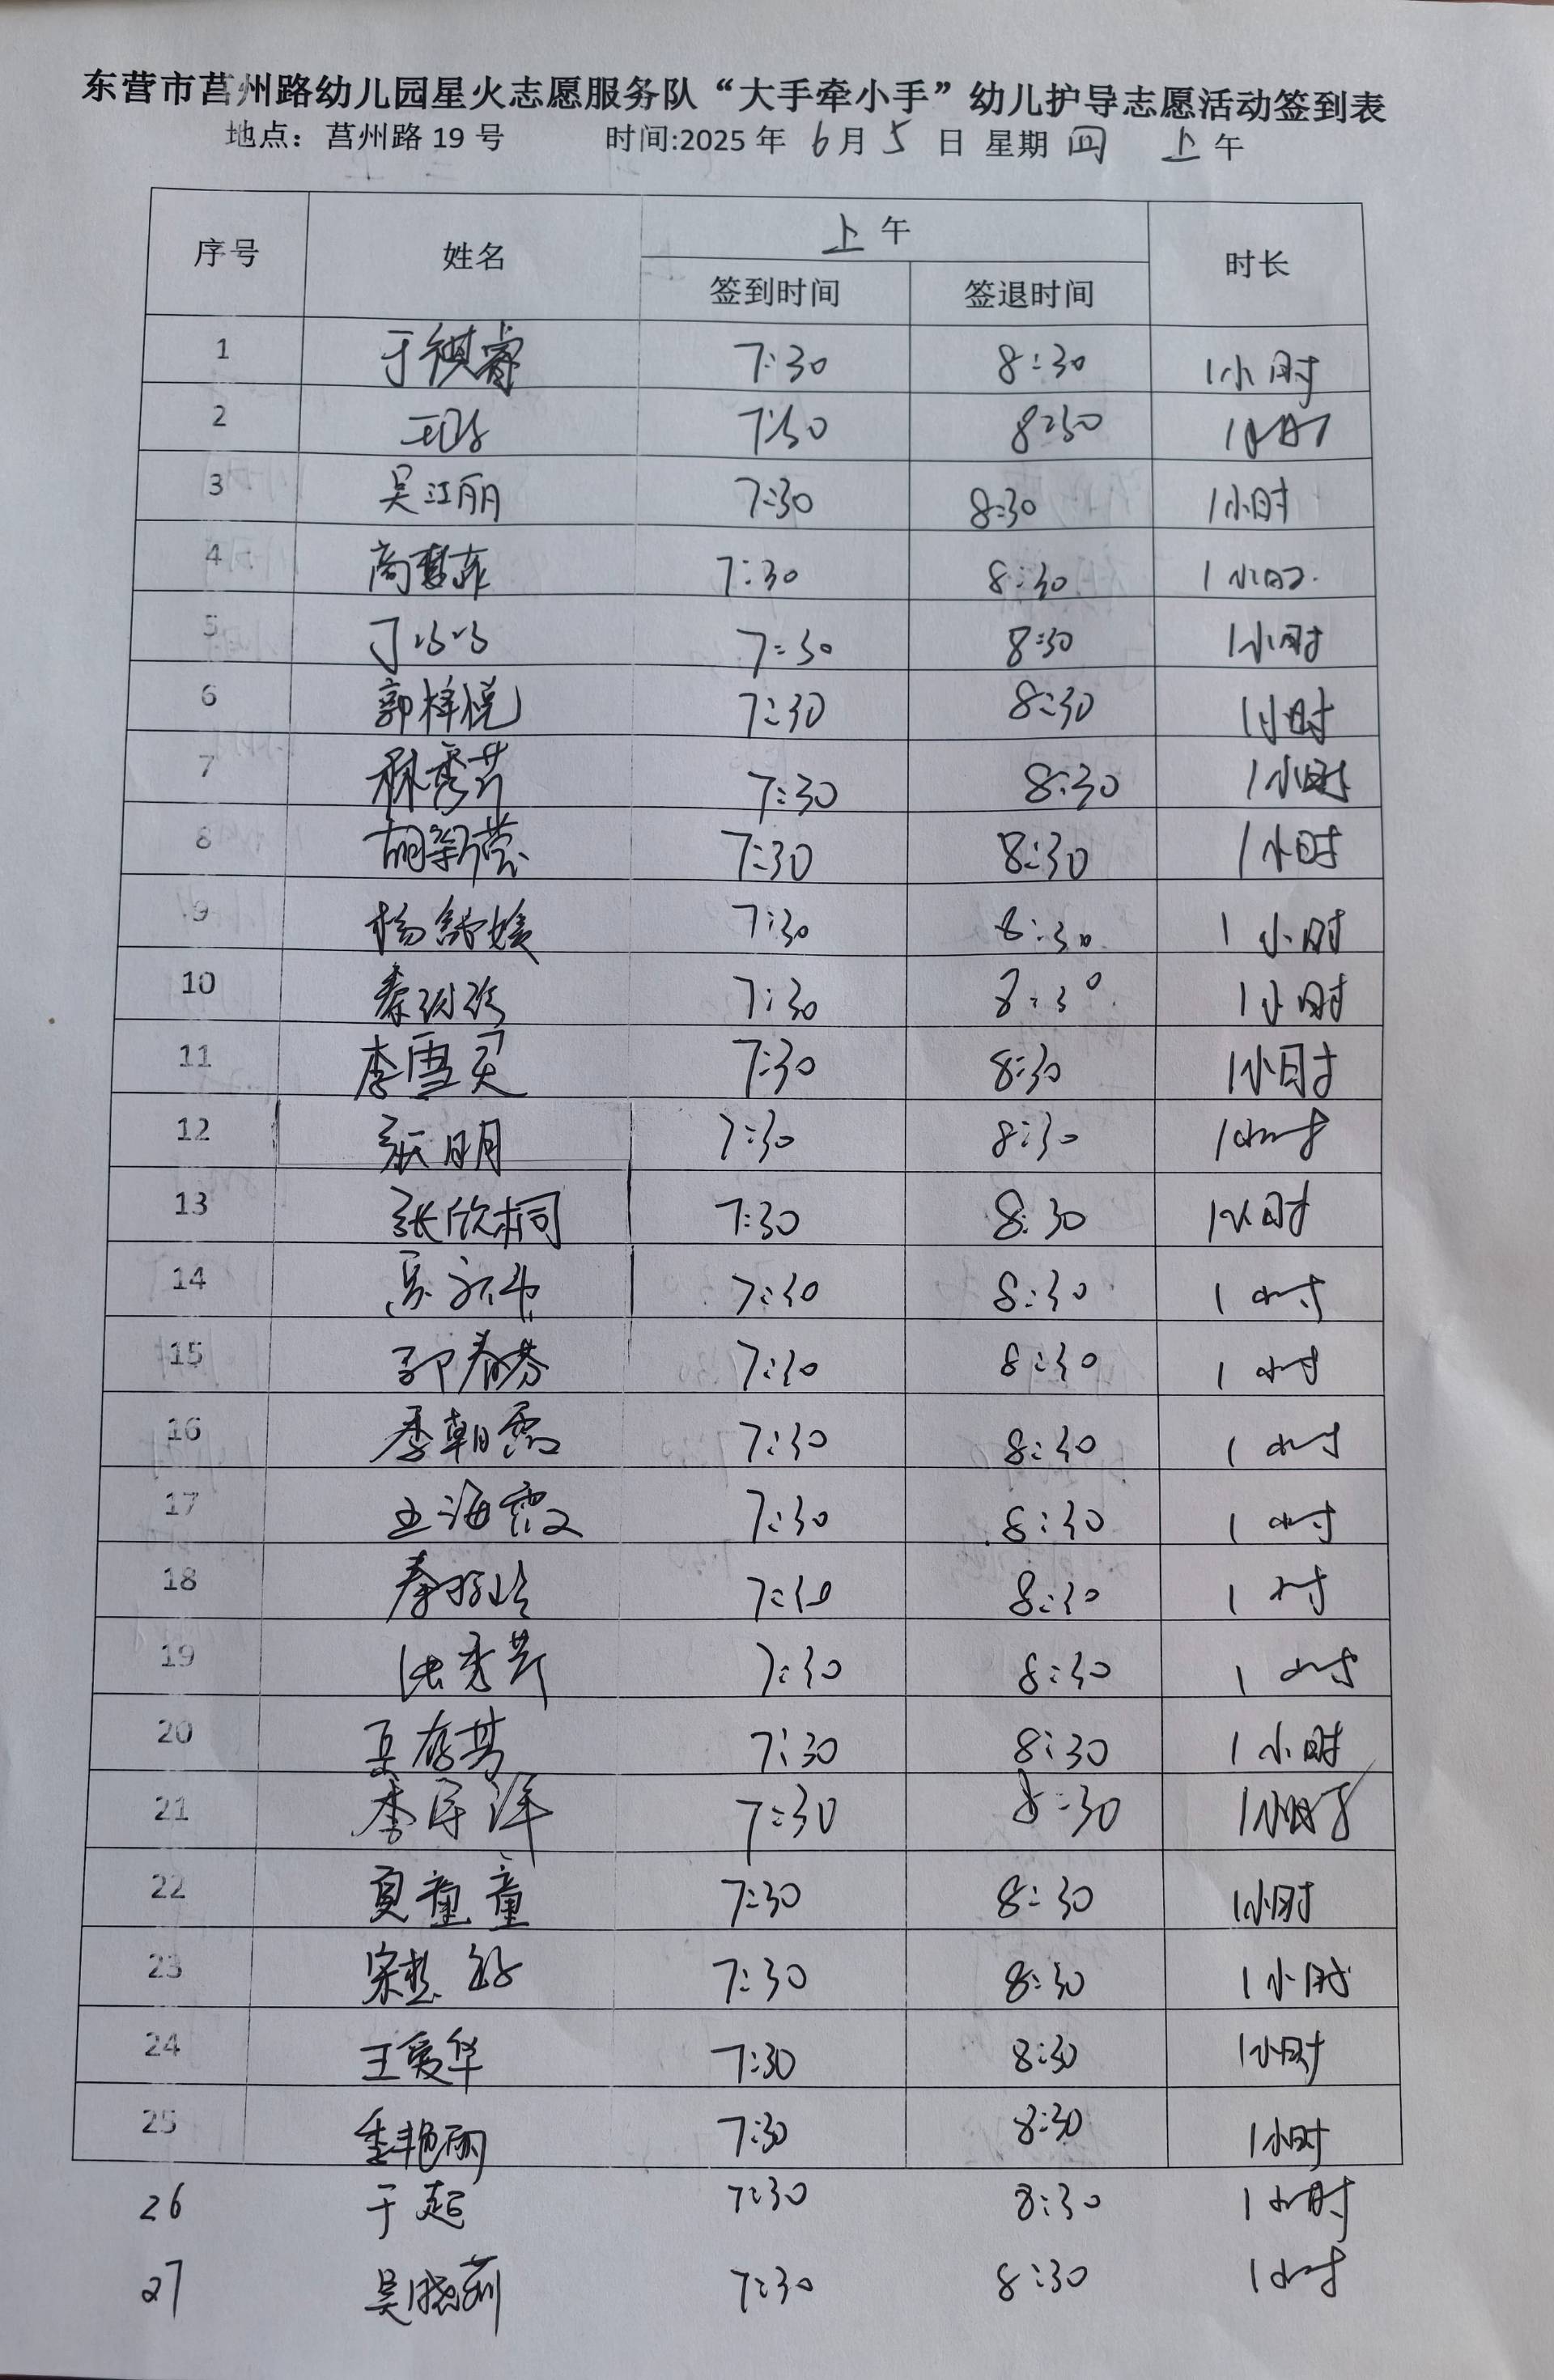 东营市莒州路幼儿园星火志愿服务队“大手牵小手”幼儿护导志愿活动签到表
地点：莒州路 19 号 时间:2025 年 6 月 5 日 星期 四 上 午
序号 姓名 上 午 时长
签到时间 签退时间
1 于祺睿 7:30 8:30 1小时
2 7:30 8:30 1小时
3 吴江丽 7:30 8:30 1小时
4 商慧菲 7:30 8:30 1小时
5 丁 7:30 8:30 1小时
6 郭梓悦 7:30 8:30 1小时
7 秀芹 7:30 8:30 1小时
8 胡新营 7:30 8:30 1小时
9 杨 媛 7:30 8:30 1小时
10 秦 玲 7:30 8:30 1小时
11 李雪灵 7:30 8:30 1小时
12 张明 7:30 8:30 1小时
13 张欣桐 7:30 8:30 1小时
14 7:30 8:30 1小时
15 郭春芬 7:30 8:30 1小时
16 季朝霞 7:30 8:30 1小时
17 王海霞 7:30 8:30 1小时
18 秦 玲 7:30 8:30 1小时
19 张秀芹 7:30 8:30 1小时
20 7:30 8:30 1小时
21 李 洋 7:30 8:30 1小时
22 夏童童 7:30 8:30 1小时
23 宋 7:30 8:30 1小时
24 王爱华 7:30 8:30 1小时
25 季艳丽 7:30 8:30 1小时
26 于起 7:30 8:30 1小时
27 吴晓莉 7:30 8:30 1小时